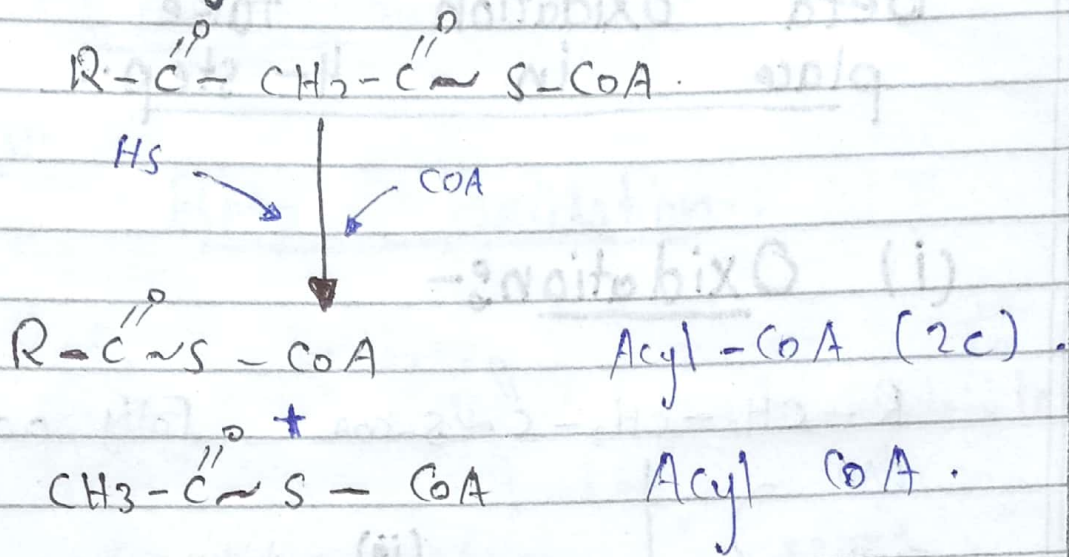 R-C(=O)-CH2-C(=O)~S-CoA.
HS COA
R-C(=O)~S-CoA Acyl-CoA (2c).
+
CH3-C(=O)~S-CoA Acyl CoA.